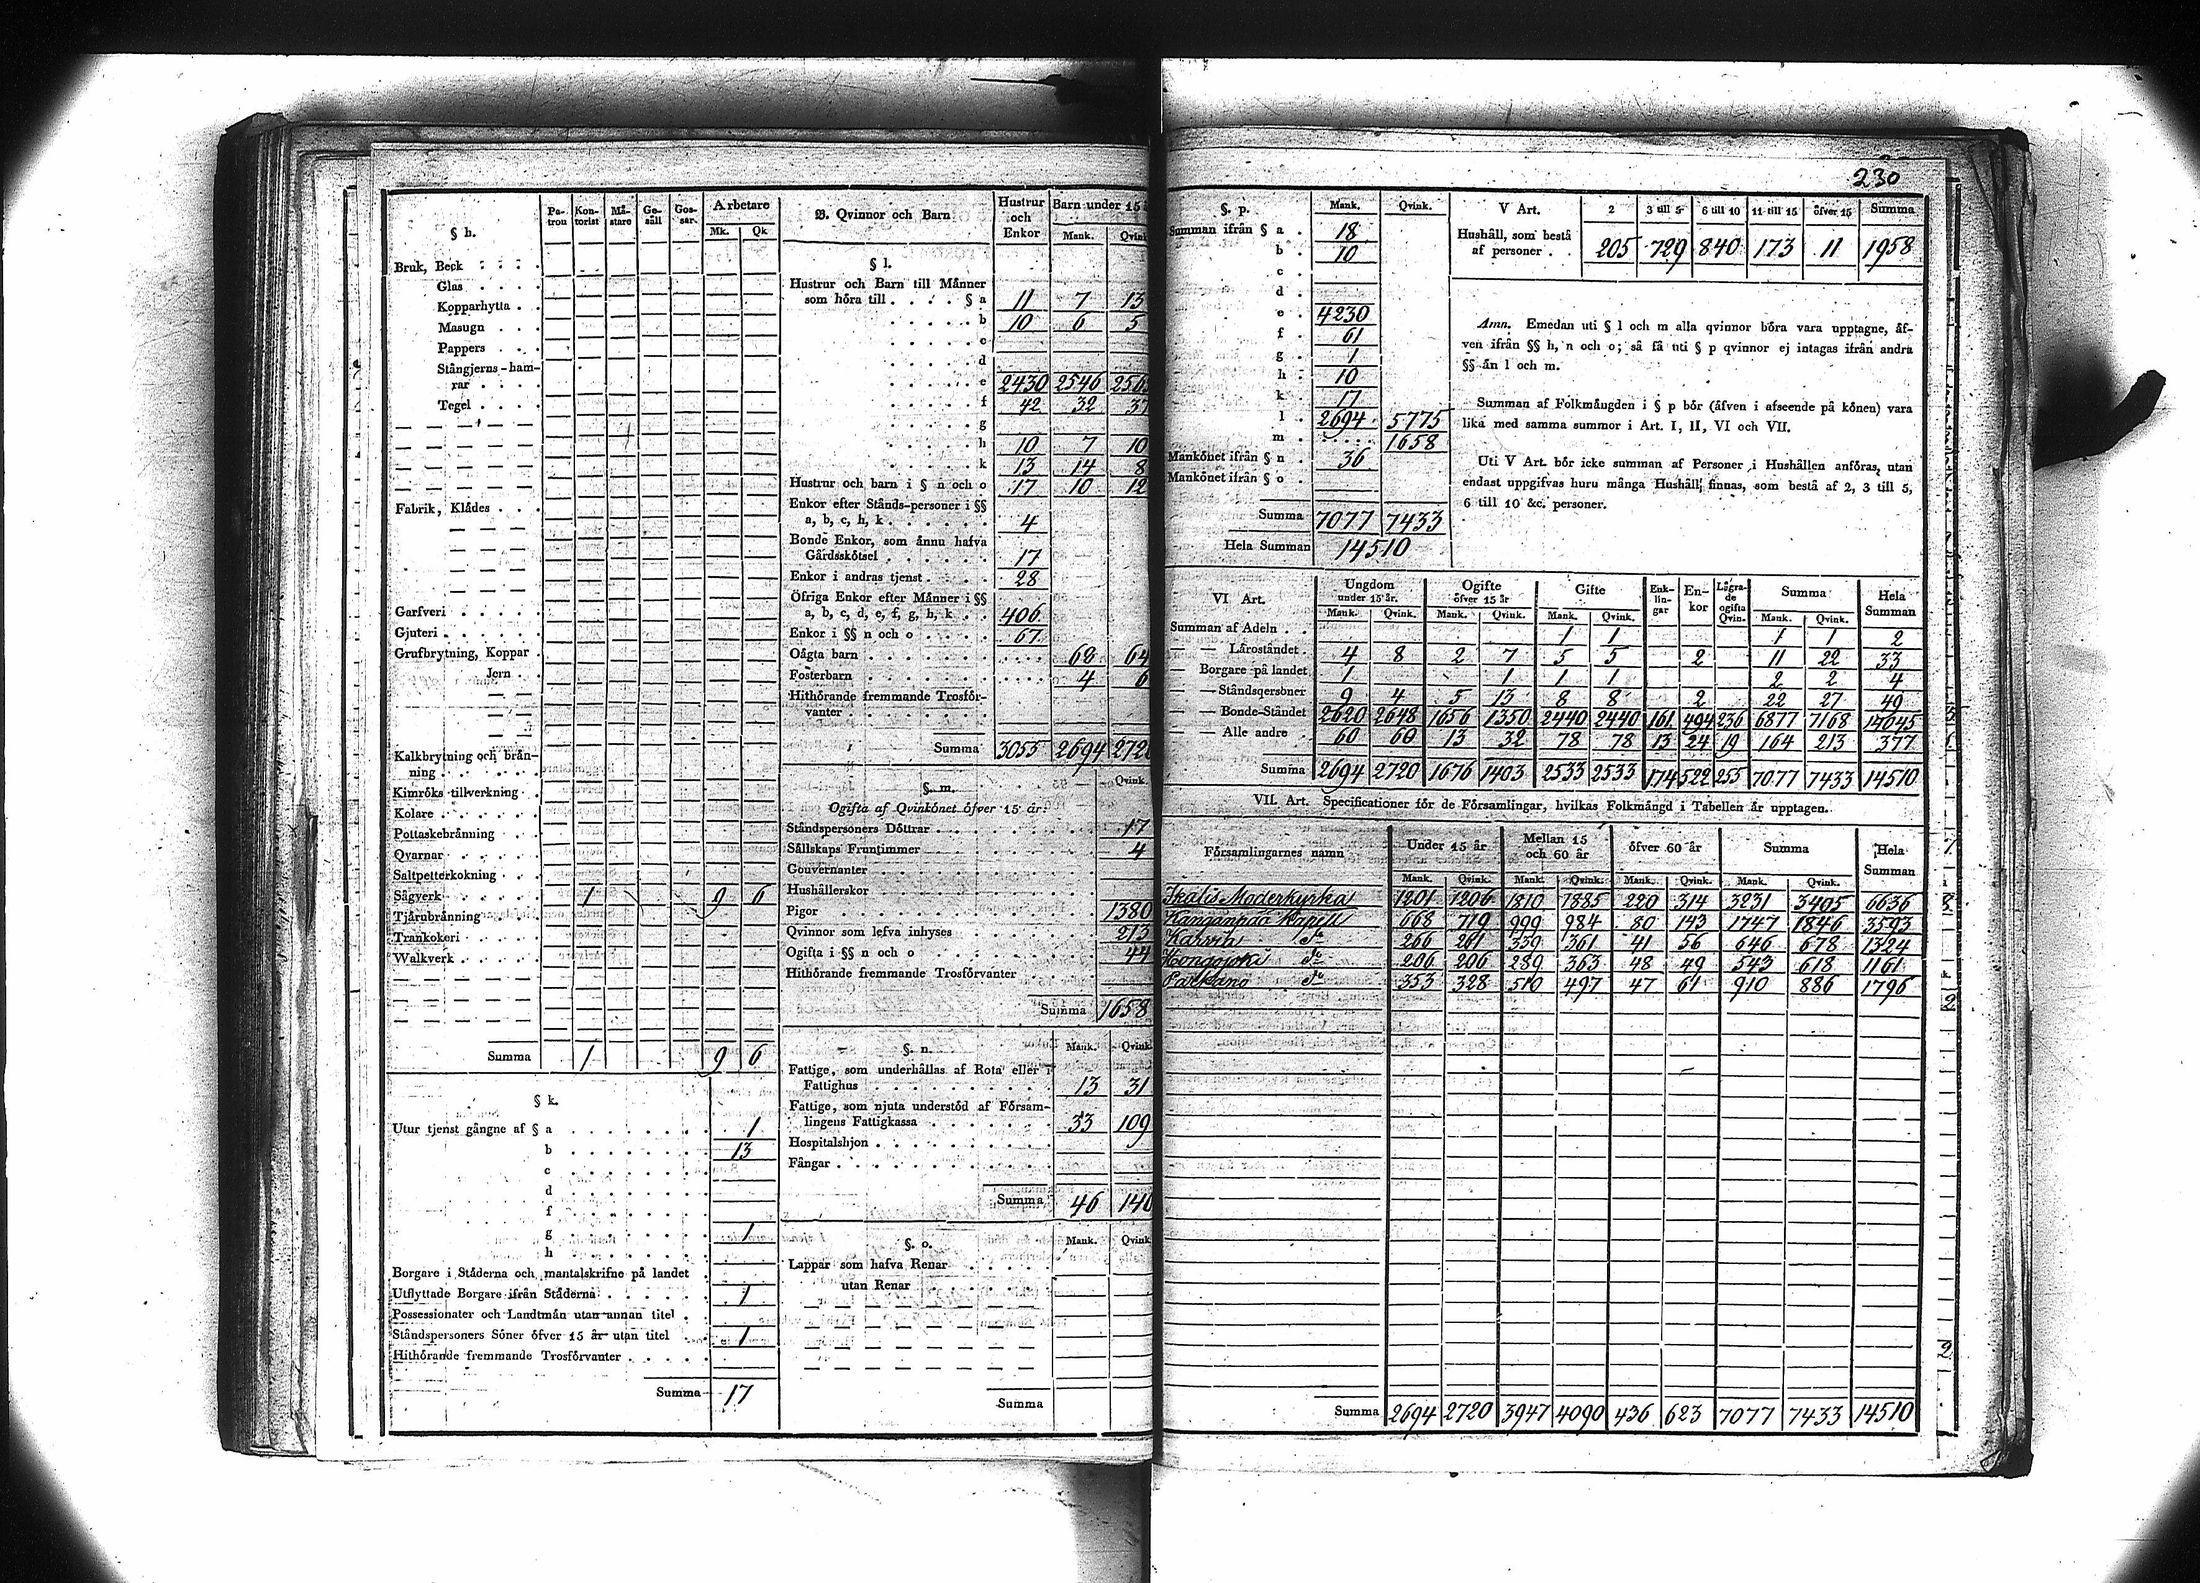 230
Pa-trou Kon-torist Må-stare Ge-säll Gos-sar. Arbetare
Mk. Qk
§ h.
Bruk, Beck
Glas
Kopparhytta
Masugn
Pappers
Stångjerns-ham-
rar
Tegel
Fabrik, Klådes
Garfveri
Gjuteri
Grufbrytning, Koppar
Jern
Kalkbrytning och brån-
ning
Kimröks tillverkning
Kolare
Pottaskebrånning
Qvarnar
Saltpetterkokning
Sågverk 1 9 6
Tjårubrånning
Trankokeri
Walkverk
Summa 1 9 6
§ k.
Utur tjenst gångne af § a 1
b 13
c
d
f
g 1
h
Borgare i Ståderna och mantalskrifne på landet
Utflyttade Borgare ifrån Ståderna 1
Possessionater och Landtmån utan annan titel
Ståndspersoners Söner öfver 15 år utan titel 1
Hithörande fremmande Trosförvanter
Summa 17
B. Qvinnor och Barn Hustrur och Enkor Barn under 15
Mank. Qvink
§ l.
Hustrur och Barn till Månner
som höra till § a 11 7 13
b 10 6 5
c
d
e 2430 2546 256
f 42 32 37
g
h 10 7 10
k 13 14 8
Hustrur och barn i § n och o 17 10 12
Enkor efter Stånds-personer i §§
a, b, c, h, k 4
Bonde Enkor, som ånnu hafva
Gårdsskötsel 17
Enkor i andras tjenst 28
Öfriga Enkor efter Månner i §§
a, b, c, d, e, f, g, h, k 406
Enkor i §§ n och o 67
Oågta barn 68 64
Fosterbarn 4 6
Hithörande fremmande Trosför-
vanter
Summa 3055 2694 2720
§. m. Qvink.
Ogifta af Qvinkönet öfver 15 år:
Ståndspersoners Döttrar 17
Sållskaps Fruntimmer 4
Gouvernanter
Hushållerskor
Pigor 1380
Qvinnor som lefva inhyses 213
Ogifta i §§ n och o 44
Hithörande fremmande Trosförvanter
Summa 1658
§. n. Mank. Qvink.
Fattige, som underhållas af Rota eller i
Fattighus 13 31
Fattige, som njuta understöd af Försam-
lingens Fattigkassa 33 109
Hospitalshjon
Fångar
Summa 46 140
§. o. Mank. Qvink
Lappar som hafva Renar
utan Renar
Summa
§. p. Mank. Qvink.
Summan ifrån § a 18
b 10
c
d
e 4230
f 61
g 1
h 10
k 17
l 2694 5775
m 1658
Mankönet ifrån § n 36
Mankönet ifrån § o
Summa 7077 7433
Hela Summan 14510
V Art. 2 3 till 5 6 till 10 11 till 15 öfver 15 Summa
Hushåll, som bestå
af personer 205 729 840 173 11 1958
Amn. Emedan uti § l och m alla qvinnor böra vara upptagne, åf-
ven ifrån §§ h, n och o; så få uti § p qvinnor ej intagas ifrån andra
§§ ån l och m.
Summan af Folkmångden i § p bör (åfven i afseende på könen) vara
lika med samma summor i Art. I, II, VI och VII.
Uti V Art. bör icke summan af Personer i Hushållen anföras, utan
endast uppgifvas huru många Hushåll finnas, som bestå af 2, 3 till 5,
6 till 10 &c. personer.
VI Art. Ungdom under 15 år. Ogifte öfver 15 år Gifte Enk-lin-gar En-kor Lågra-de ogifta Qvin. Summa Hela Summan
Mank. Qvink. Mank. Qvink. Mank. Qvink. Mank. Qvink.
Summan af Adeln 1 1 1 1 2
— — Låroståndet 4 8 2 7 5 5 2 11 22 33
— Borgare på landet 1 1 1 1 2 2 4
— — Ståndspersoner 9 4 5 13 8 8 2 22 27 49
— — Bonde-Ståndet 2620 2648 1656 1350 2440 2440 161 494 236 6877 7168 14045
— — Alle andre 60 60 13 32 78 78 13 24 19 164 213 377
Summa 2694 2720 1676 1403 2533 2533 174 522 255 7077 7433 14510
VII. Art. Specificationer för de Församlingar, hvilkas Folkmångd i Tabellen år upptagen.
Församlingarnes namn Under 15 år Mellan 15 och 60 år öfver 60 år Summa Hela Summan
Mank. Qvink. Mank. Qvink. Mank. Qvink. Mank. Qvink.
Ikalis Moderkyrka 1201 1206 1810 1885 220 314 3231 3405 6636
Kanganpää Kapell 668 719 999 984 80 143 1747 1846 3593
Karvia do 266 261 339 361 41 56 646 678 1324
Hongojoki do 206 206 289 363 48 49 543 618 1161
Parkano do 353 328 510 497 47 61 910 886 1796
Summa 2694 2720 3947 4090 436 623 7077 7433 14510